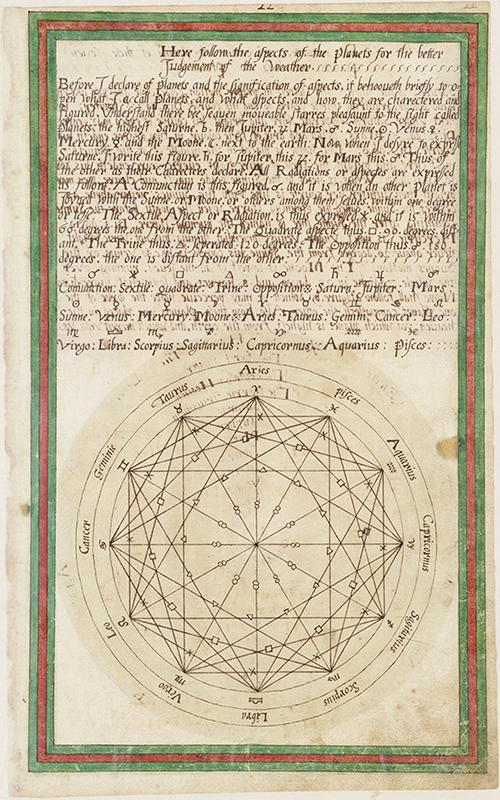 22
Here follow the aspects of the Planets for the better
Judgement of the Weather.
Before I declare of planets and the signification of aspects, it behooveth briefly to o-
pen what I call Planets, and what aspects, and how they are charectered and
figured. Understand there bee seauen moveable starres pleasaunt to the sight called
planets, the highest Saturne, ♄. then Jupiter, ♃. Mars, ♂. Sunne ☉ Venus ♀.
Mercury ☿ and the Moone, ☾. next to the earth. Now when I desyre to express
Saturne, I write this figure, ♄. for Jupiter, this ♃, for Mars this ♂. Thus of
the other as their Characters declare. All Radiations or aspectes are expressed
as follow. A Conjunction is this figured ☌. and it is when an other Planet is
joyned with the Sunne or Moone, or others among their selves within one degree
or lesse. The Sextile Aspect or Radiation, is thus expressed ⚹ and it is within
60 degrees, the one from the other. The Quadrate aspecte thus □, 90. degrees dist
ant. The Trine thus, △, seperated 120 degrees. The Opposition thus ☍ 180
degrees, the one is distant from the other.
☌ ⚹ □ △ ☍ ♄ ♃ ♂
Conjunction: Sextile: Quadrate: Trine: Opposition: Saturn: Jupiter: Mars:
☉ ♀ ☿ ☾ ♈ ♉ ♊ ♋ ♌
Sunne: Venus: Mercury: Moone: Aries: Taurus: Gemini: Cancer: Leo
♍ ♎ ♏ ♐ ♑ ♒ ♓
Virgo: Libra: Scorpius: Sagittarius: Capricornus: Aquarius: Pisces:
Aries
pisces
Aquarius
Capricornus
Sagittarius
Scorpius
Libra
Virgo
Leo
Cancer
Geminie
Taurus